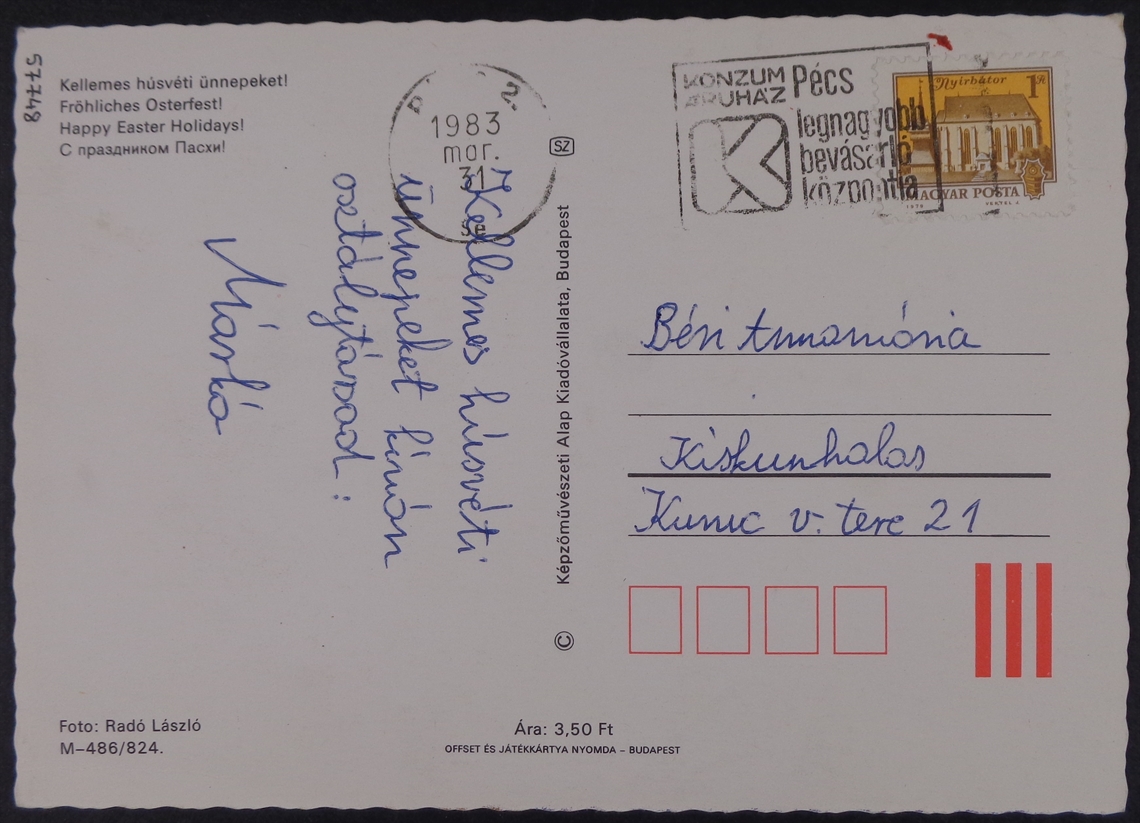 57748
Kellemes húsvéti ünnepeket!
Fröhliches Osterfest!
Happy Easter Holidays!
С праздником Пасхи!
1983
mar.
31
SZ
KONZUM
ÁRUHÁZ
Pécs
legnagyobb
bevásárló
központja
Nyírbátor
1 Ft
MAGYAR POSTA
1979
VERTEL J.
Kellemes húsvéti
ünnepeket kíván
osztálytársad:
Márkó
Képzőművészeti Alap Kiadóvállalata, Budapest
©
Béri Annamária
Kiskunhalas
Kunic v. tere 21
Foto: Radó László
M–486/824.
Ára: 3,50 Ft
OFFSET ÉS JÁTÉKKÁRTYA NYOMDA – BUDAPEST